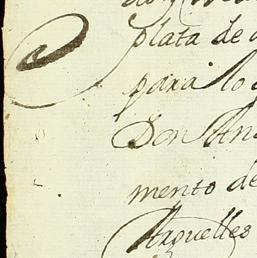 plata de
para lo
Don An
mento de
Arguelles